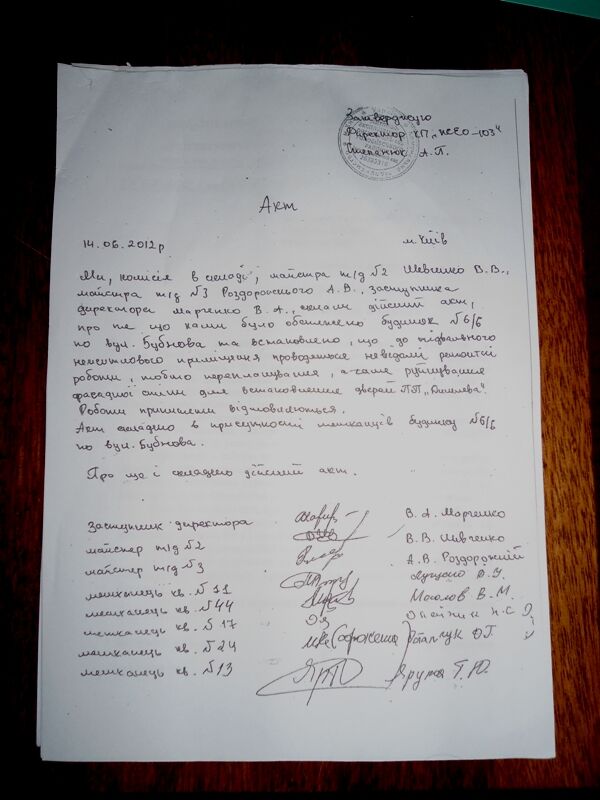 Затверджую
Директор КП „ЖЕО-103"
Степанюк А.П.
Акт
14.06.2012р м. Київ
Ми, комісія в складі, майстра т/д №2 Шевченко В.В.,
майстра т/д №3 Роздорожнього А.В., заступника
директора Марченко В.А., склали дійсний акт,
про те що нами було обстежено будинок №6/6
по вул. Бубнова та встановлено, що до підвального
нежитлового приміщення проводяться невідомі ремонтні
роботи, тобто перепланування, а саме руйнування
фасадної стіни для встановлення дверей ПП
Роботи припинити відмовляються.
Акт складено в присутності мешканців будинку №6/6
по вул. Бубнова.
Про що і складено дійсний акт.
Заступник директора В.А. Марченко
майстер т/д №2 В.В. Шевченко
майстер т/д №3 А.В. Роздорожній
мешканець кв. №11
мешканець кв. №44 В.М.
мешканець кв. №17
мешканець кв. №24
мешканець кв. №13